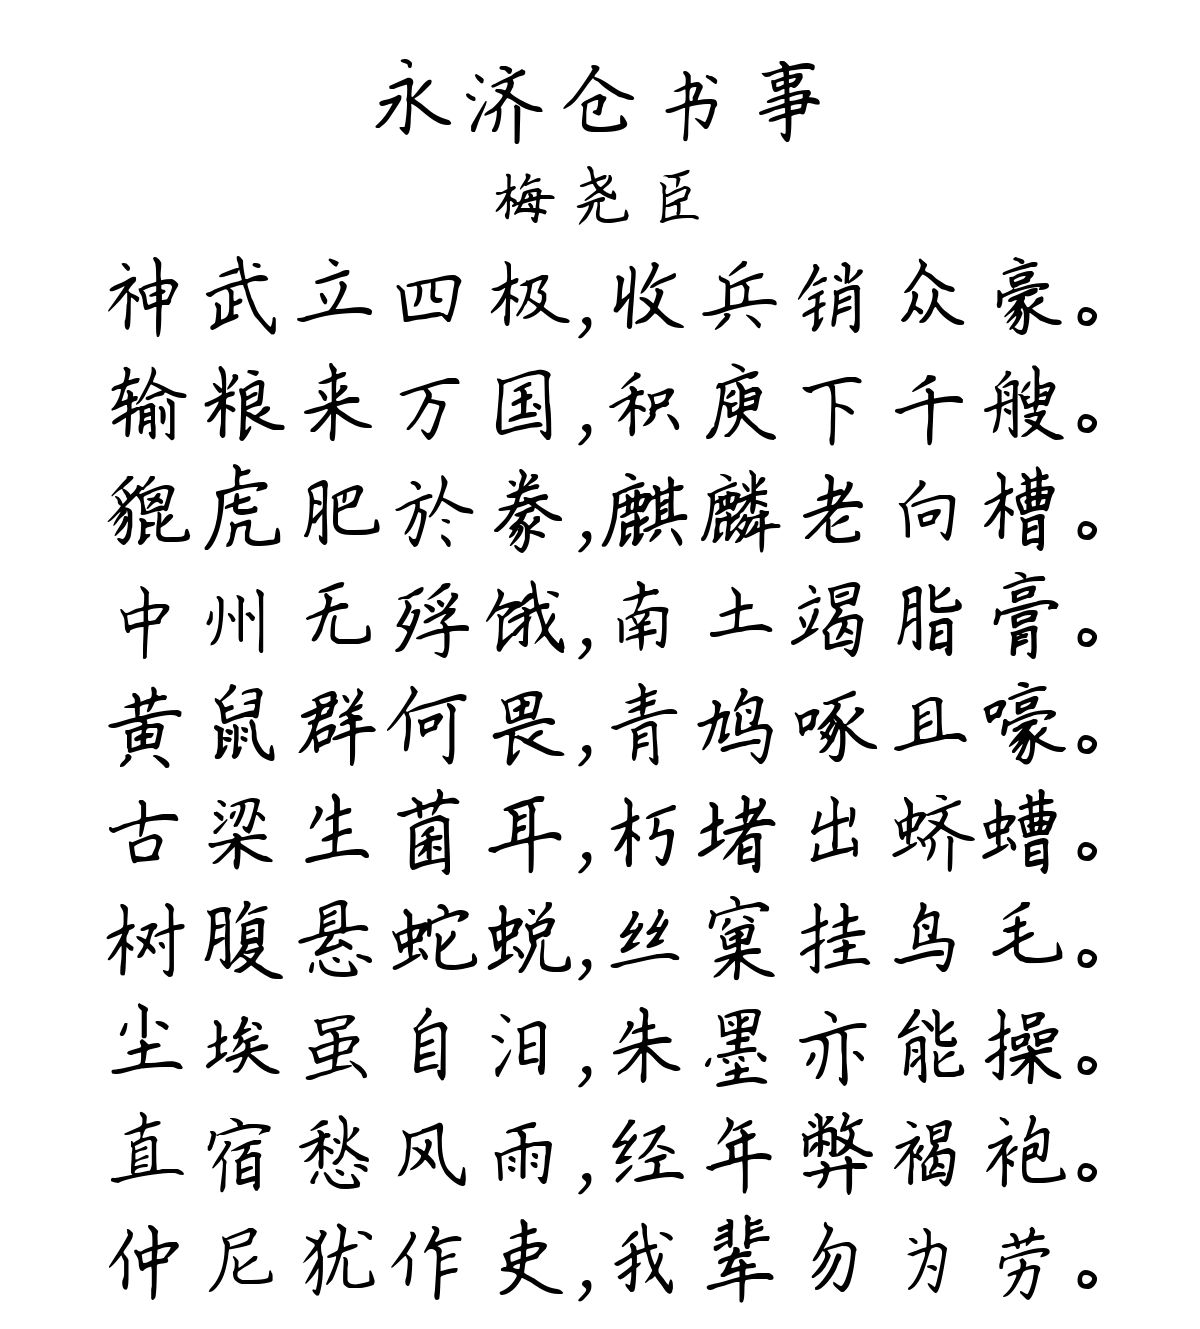 永济仓书事
梅尧臣
神武立四极,收兵销众豪。
输粮来万国,积庾下千艘。
貔虎肥於豢,麒麟老向槽。
中州无殍饿,南土竭脂膏。
黄鼠群何畏,青鸠啄且嚎。
古梁生菌耳,朽堵出蛴螬。
树腹悬蛇蜕,丝窠挂鸟毛。
尘埃虽自汨,朱墨亦能操。
直宿愁风雨,经年弊褐袍。
仲尼犹作吏,我辈勿为劳。